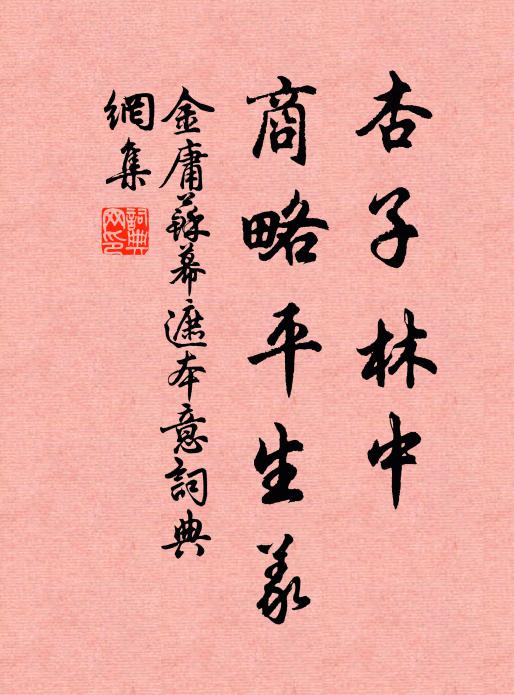 杏子林中
商略平生義
金庸蘇幕遮本意詞典
網集
詞典網印